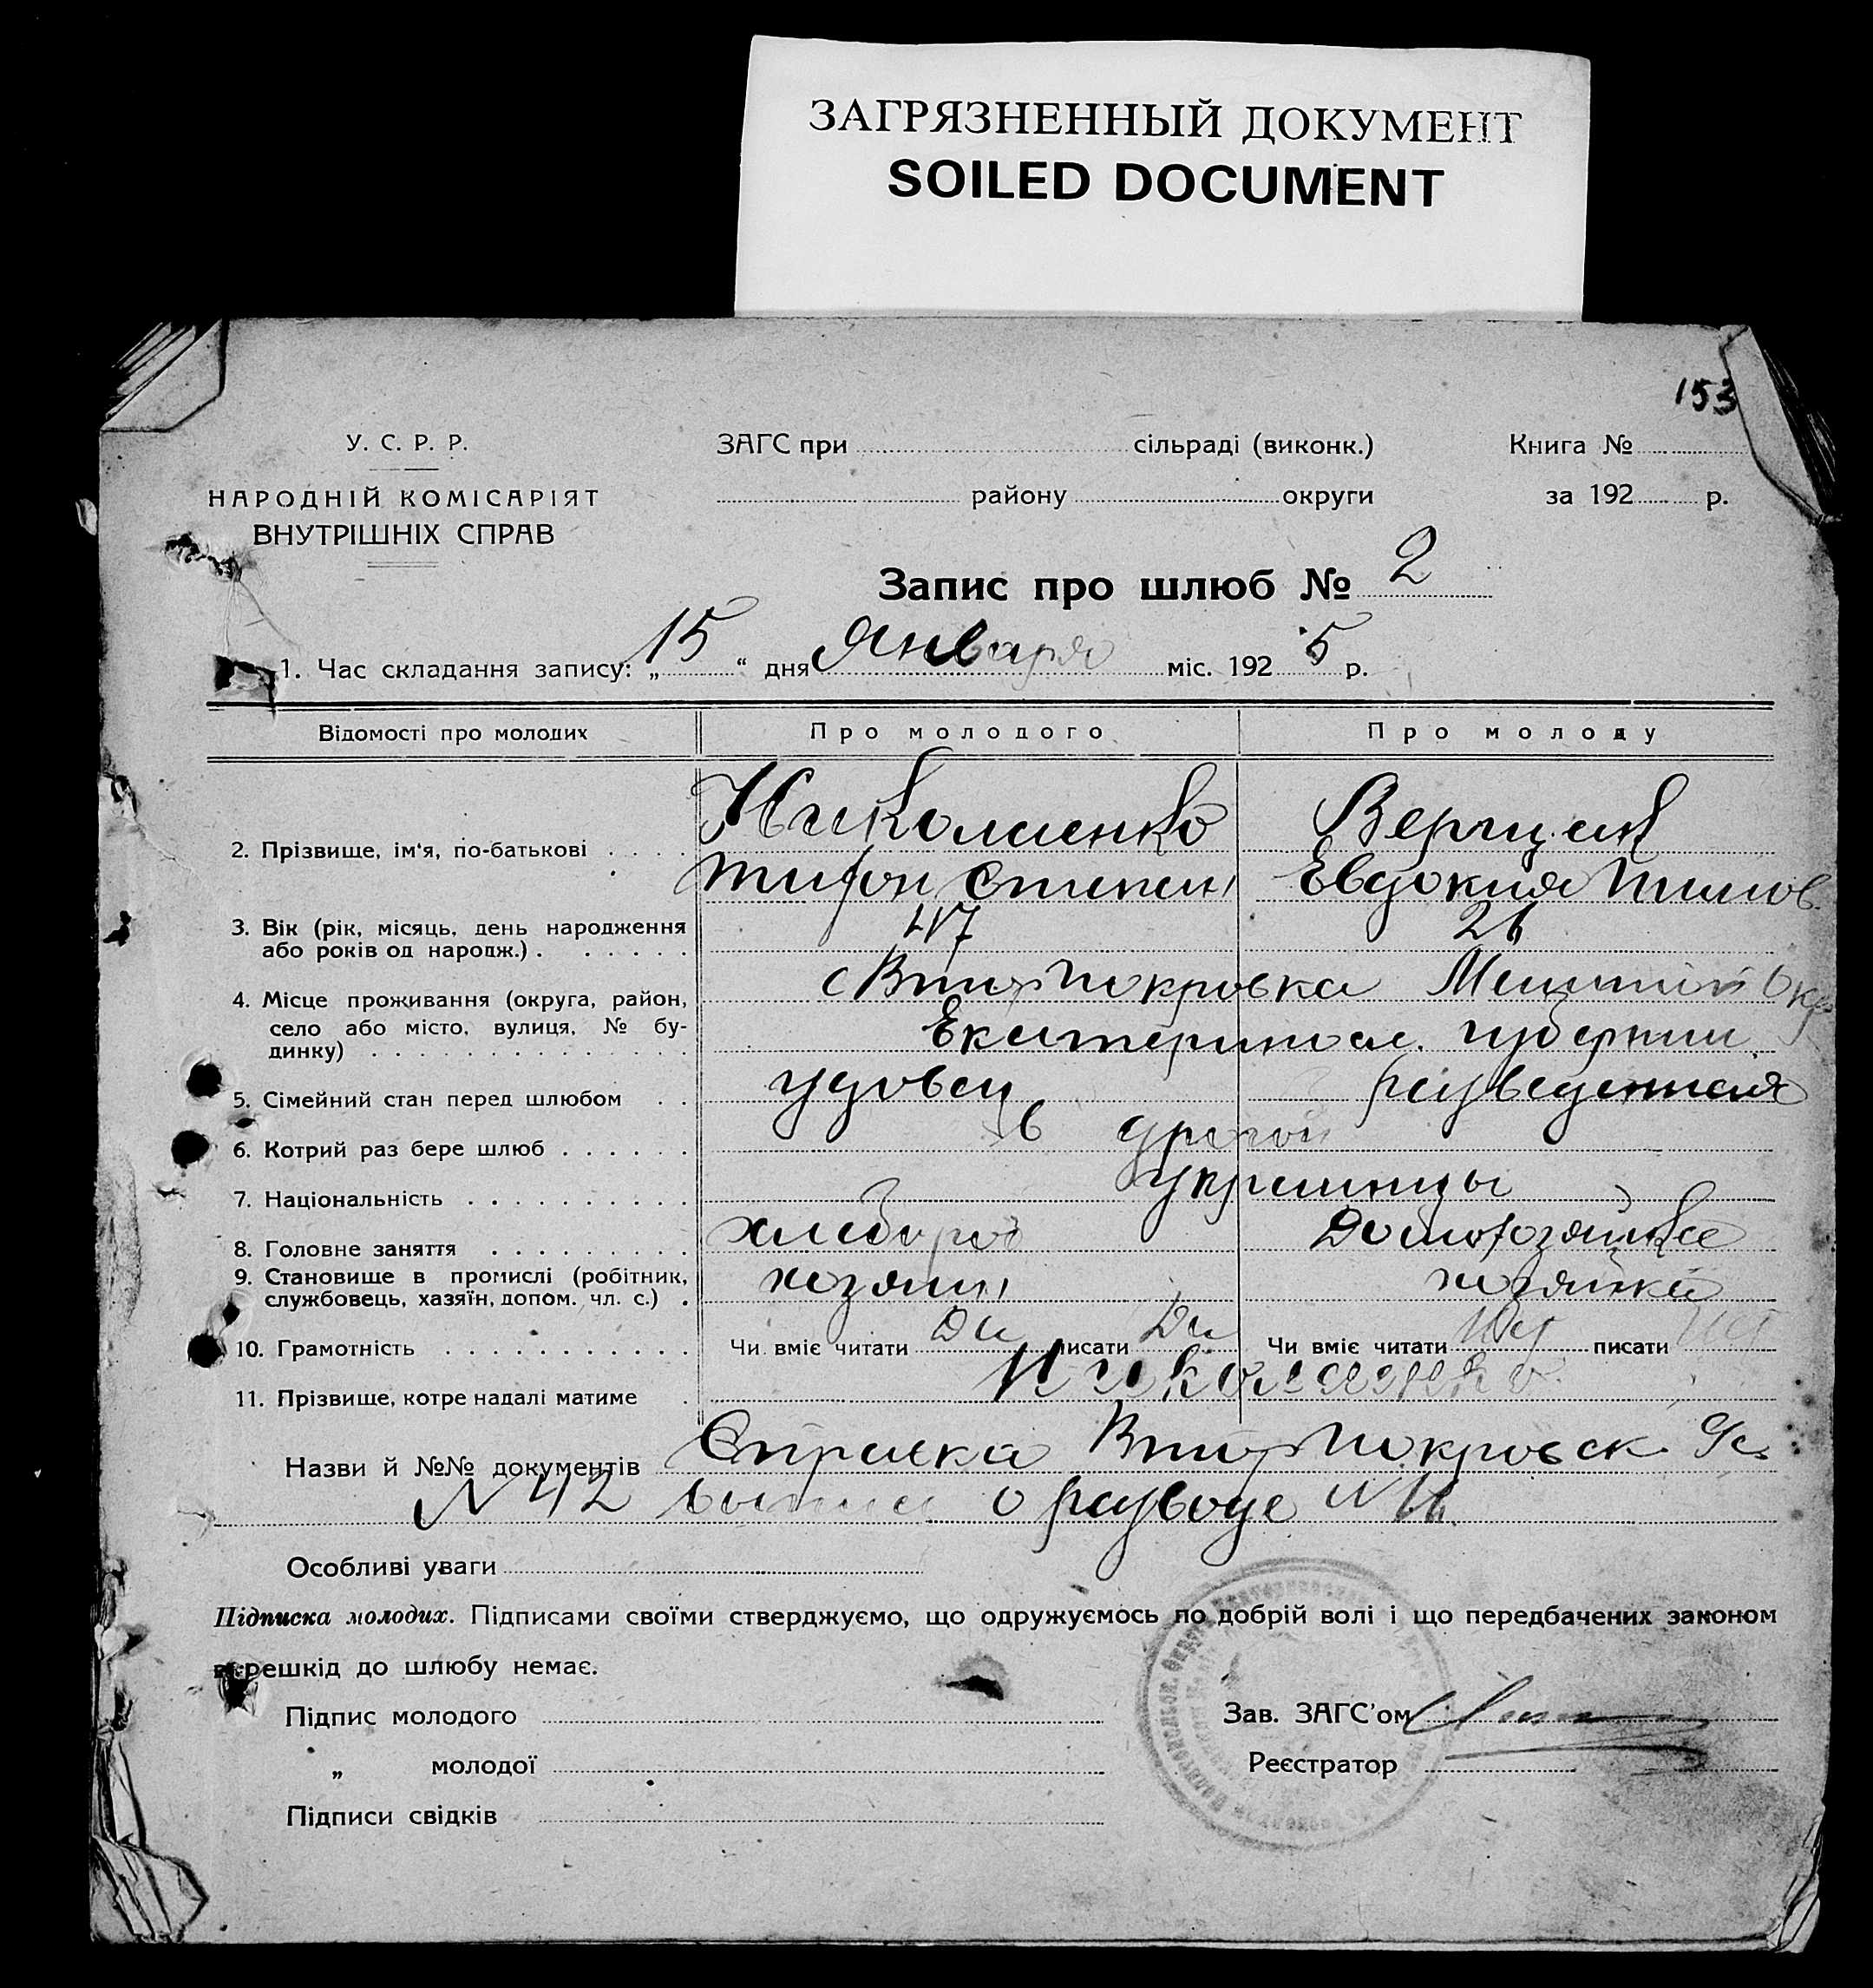 ЗАГРЯЗНЕННЫЙ ДОКУМЕНТ
SOILED DOCUMENT
153
У. С. Р. Р.
НАРОДНІЙ КОМІСАРІЯТ
ВНУТРІШНІХ СПРАВ
ЗАГС при сільраді (виконк.)
району округи
Книга №
за 192 р.
Запис про шлюб № 2
1. Час складання запису: „15“ дня Января міс. 1925 р.
Відомості про молодих Про молодого Про молоду
2. Прізвище, ім'я, по-батькові
Николаенко
Тифон Степан
Верещак
Евдокия
3. Вік (рік, місяць, день народження
або років од народж.)
47 26
4. Місце проживання (округа, район,
село або місто, вулиця, № бу-
динку)
с Втор Покровка Окр
Екатериносл. губернии
5. Сімейний стан перед шлюбом удовец разведенная
6. Котрий раз бере шлюб в другой
7. Національність украинцы
8. Головне заняття хлебороб Домохозяйка
9. Становище в промислі (робітник,
службовець, хазяїн, допом. чл. с.)
хозяин хозяйка
10. Грамотність Чи вміє читати Да писати Да Чи вміє читати Нет писати Нет
11. Прізвище, котре надалі матиме Николаенко
Назви й №№ документів Справка Втор Покровск
№ 42 о разводе №
Особливі уваги
Підписка молодих. Підписами своїми стверджуємо, що одружуємось по добрій волі і що передбачених законом
перешкід до шлюбу немає.
Підпис молодого
„ молодої
Підписи свідків
Зав. ЗАГС'ом
Реєстратор